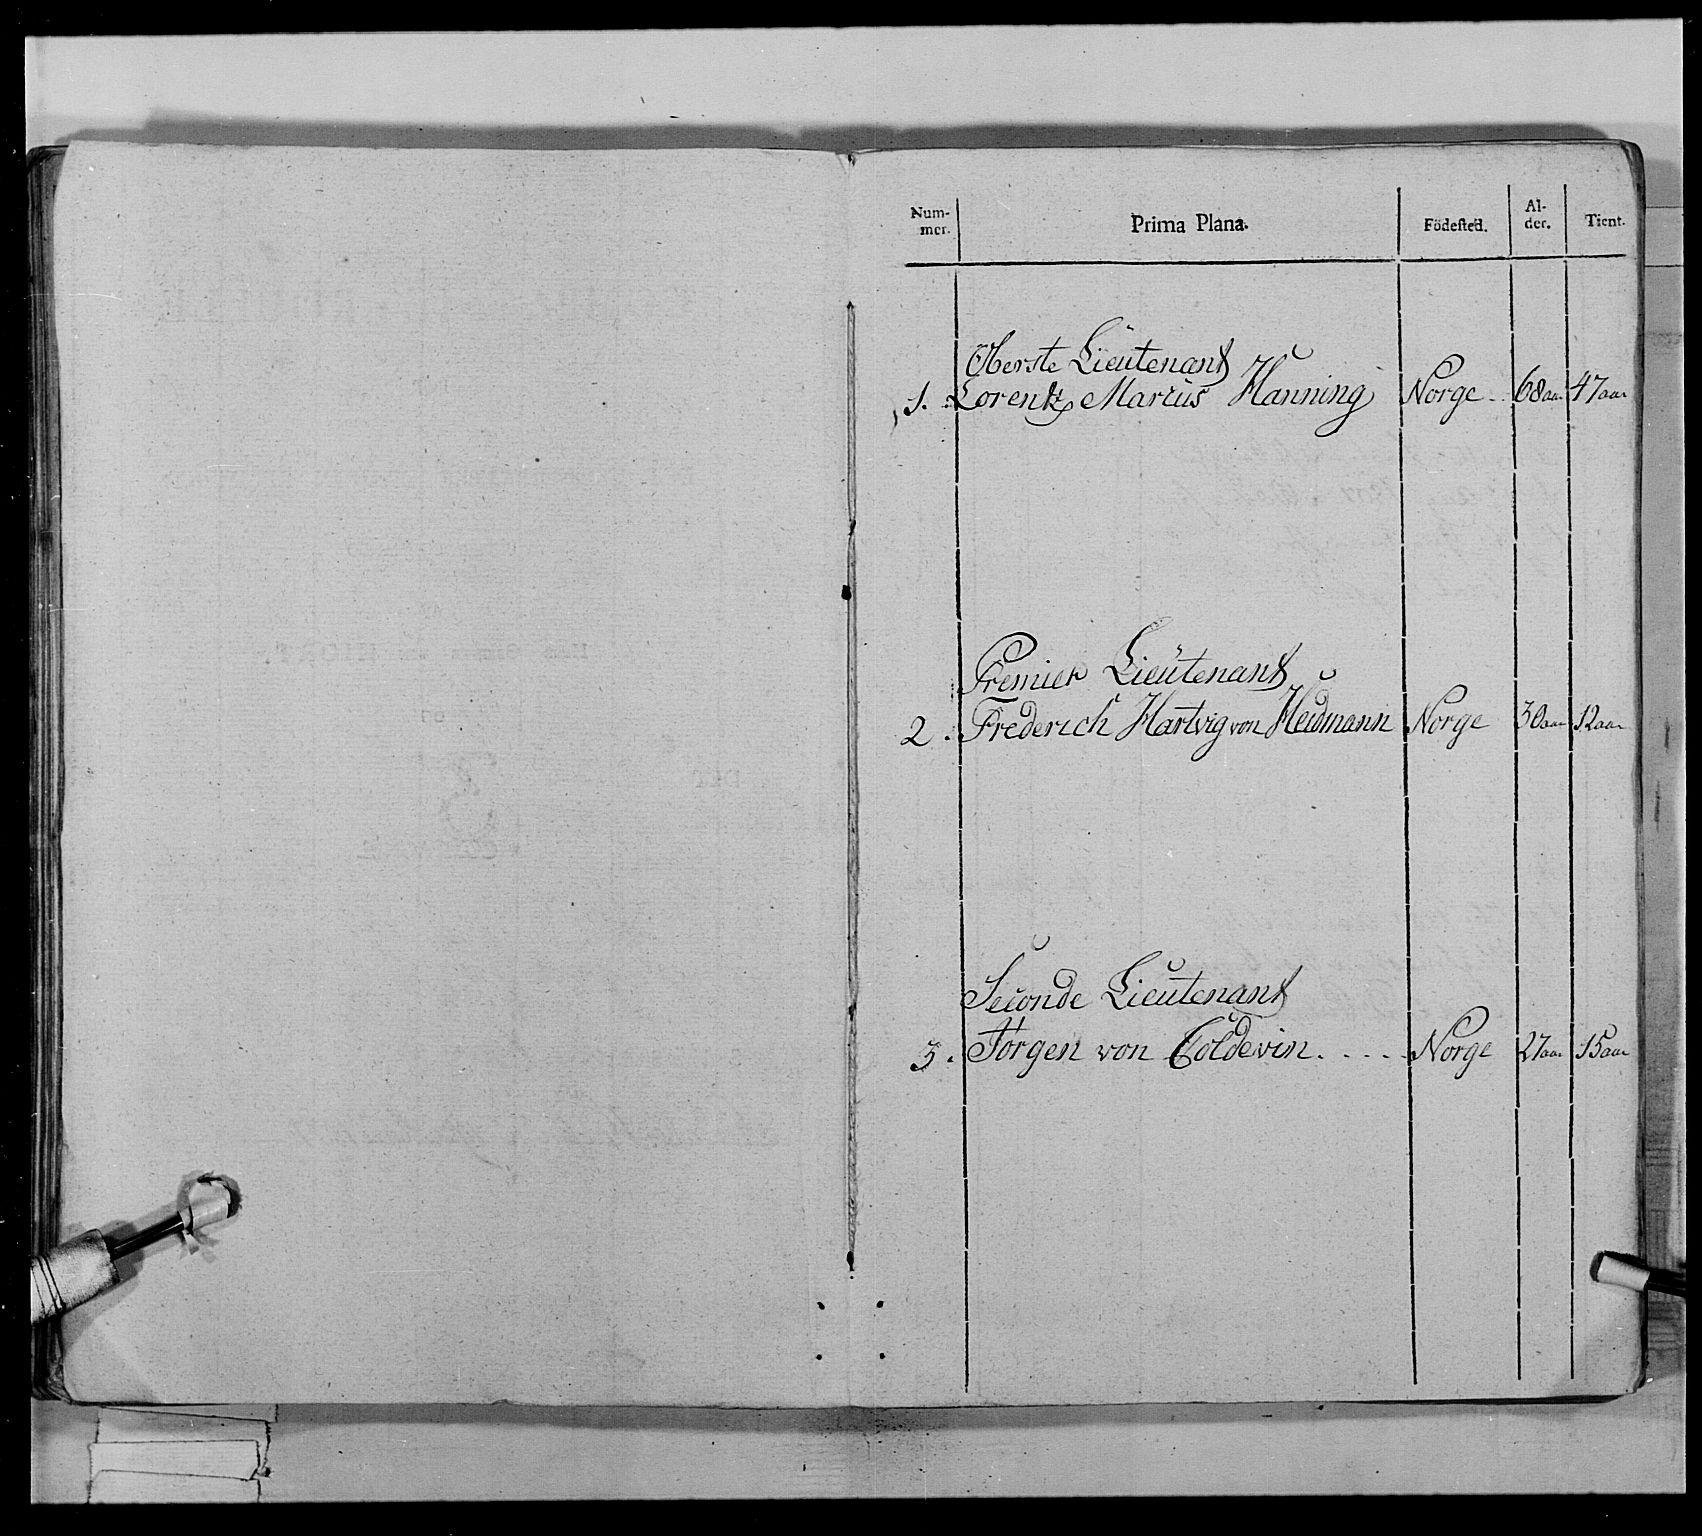 Num-
mer.
Prima Plana.
Födested.
Al-
der.
Tient.
Oberste Lieutenant
1. Lorentz Marius Hanning Norge 68 aar 47 aar
Premier Lieutenant
2. Frederich Hartvig von Heidmann Norge 30 aar 12 aar
Seconde Lieutenant
3. Jörgen von Coldevin..... Norge 27 aar 15 aar